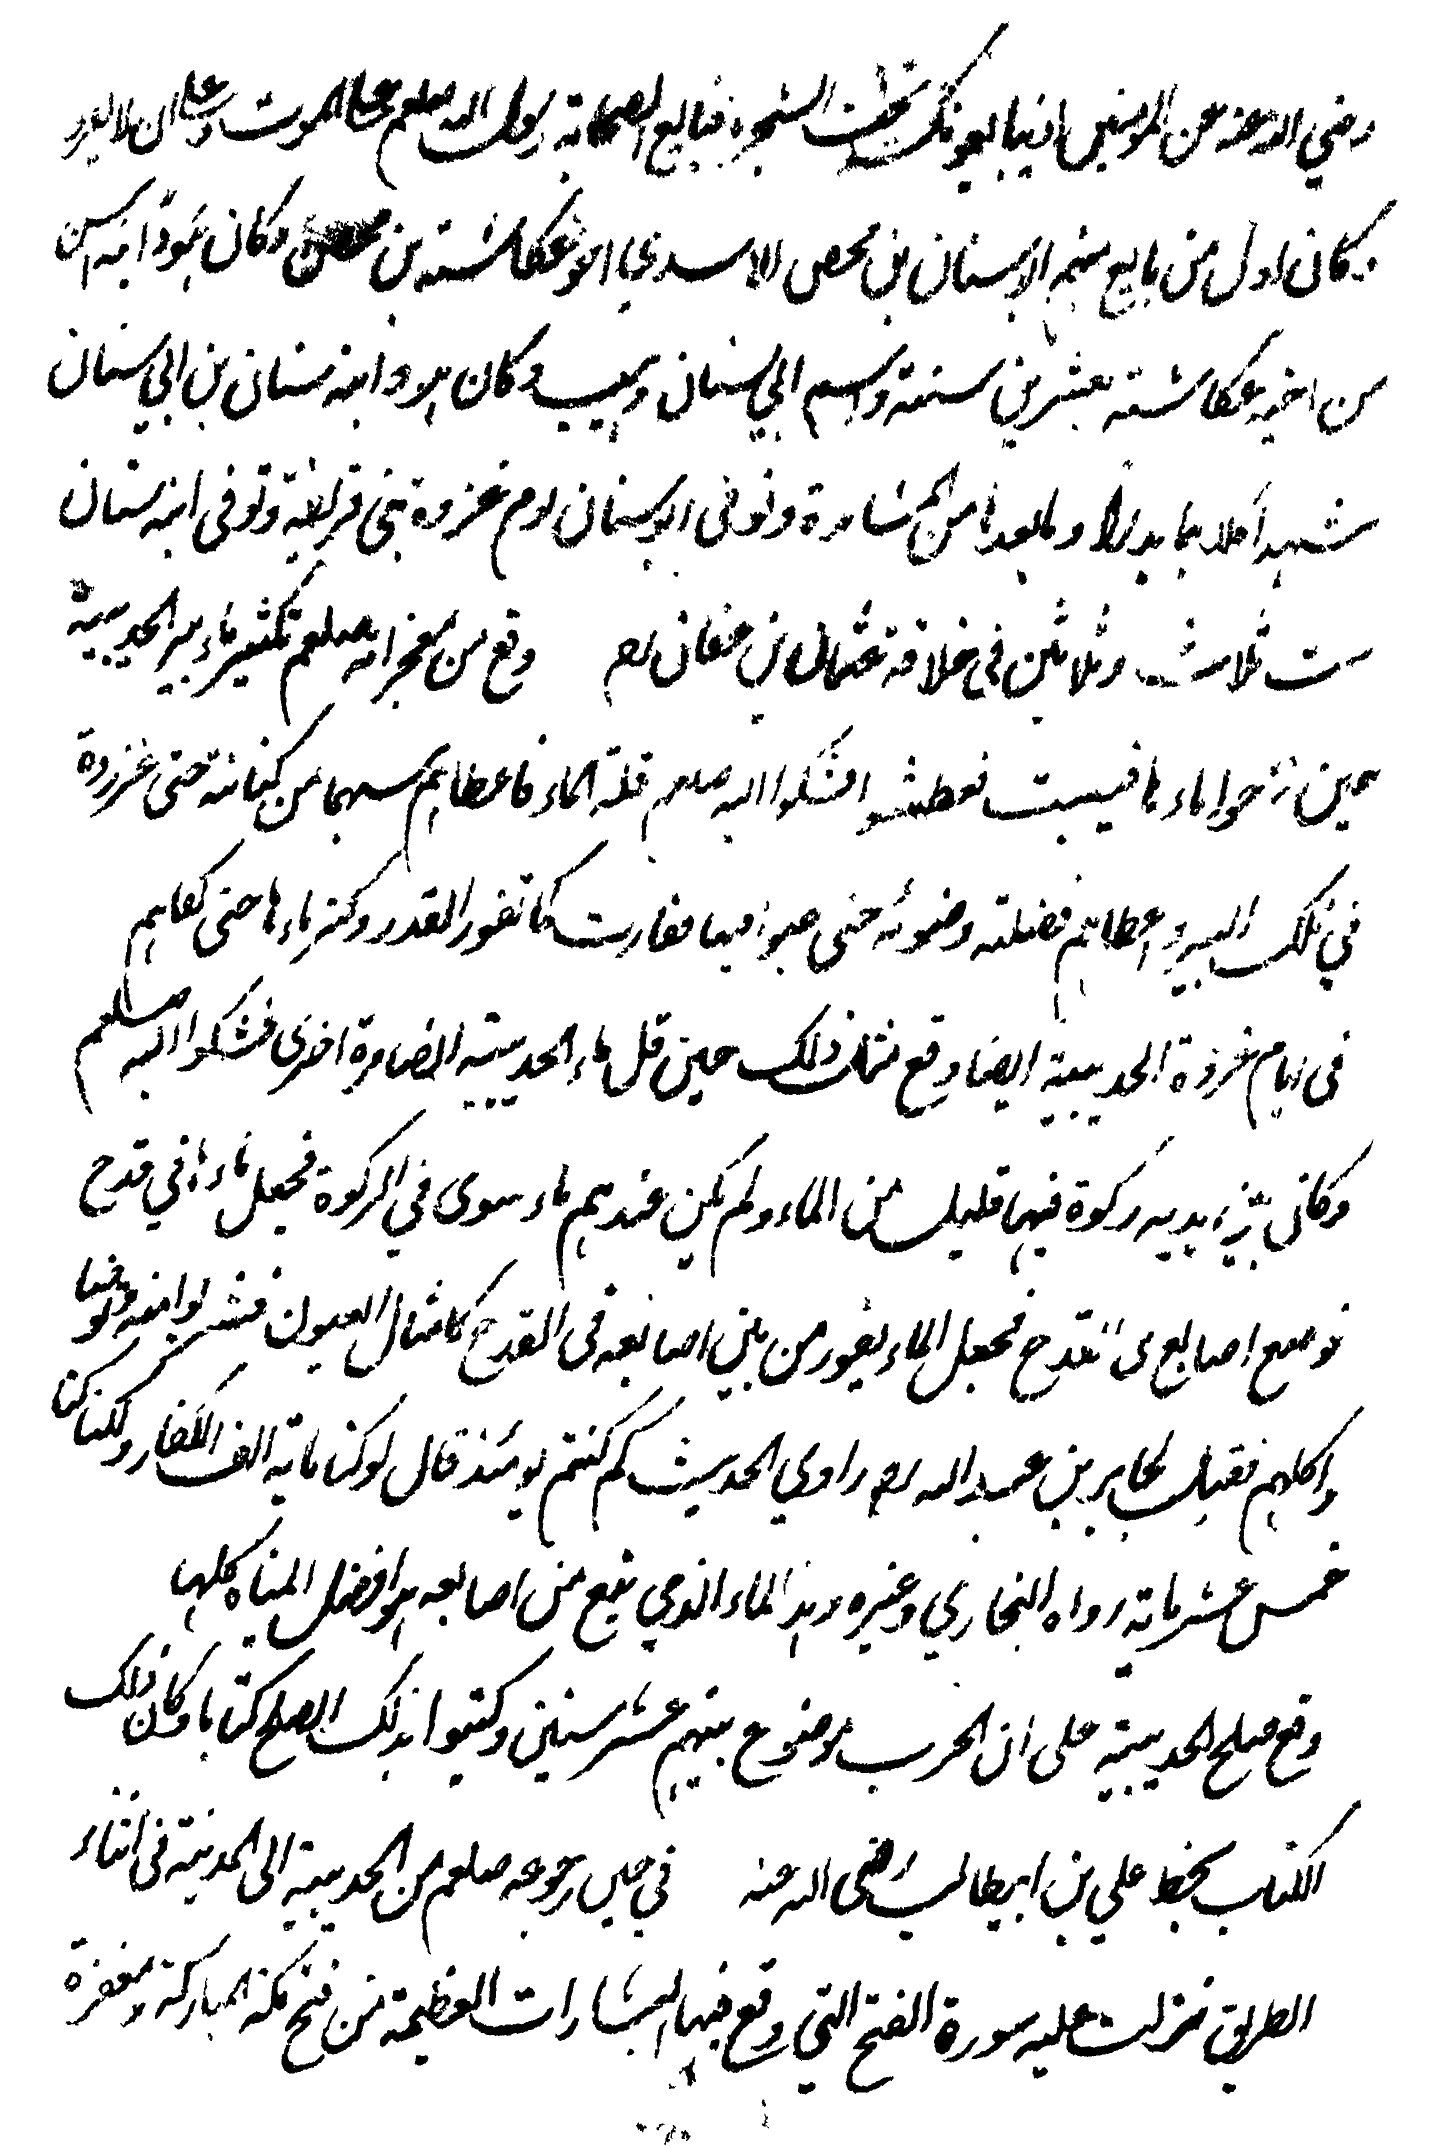 رضي الله عنه عن المؤمنين اذ يبايعونك تحت الشجرة فبايع الصحابة رسول الله صلعم على الموت وعلى ان لا يفر
وكان اول من بايع منهم ابو سنان بن محصن الاسدي اخو عكاشة بن محصن وكان هو وابنه اسن
من اخيه عكاشة بعشرين سنة واسم ابي سنان وهيب وكان هو وابنه سنان بن ابي سنان
شهدا كلاهما بدرا وما بعدها من المشاهدة وتوفى ابو سنان يوم غزوة بنى قريظة وتوفى ابنه سنان
سنة ثلاث وثلاثين فى خلافة عثمان بن عفان رضي وقع من معجزاته صلعم تكثير ماء بير الحديبية
حين نزحوا ماءها فيبست فعطشوا فشكوا اليه صلعم قلة الماء فاعطاهم سهما من كنانته حتى غرزوه
في تلك البير واعطاهم فضلته وضوئه حتى صبوه فيها ففارت كما تفور القدر وكثر ماءها حتى كفاهم
فى ايام غزوة الحديبية ايضا وقع مثل ذلك حين قل ماء الحديبية ايضا مرة اخرى فشكوا اليه صلعم
وكانت بين يديه ركوة فيها قليل من الماء ولم يكن عندهم ماء سوى في الركوة فجعل ماءها في قدح
فوضع اصابع فى القدح فجعل الماء يفور من بين اصابعه فى القدح كامثال العيون فشربوا منه وتوضا
وا كلهم فقيل لجابر بن عبد الله رضي راوي الحديث كم كنتم يومئذ قال لو كنا ماية الف لكفا ولكنا كنا
خمس عشر ماية رواه البخاري وغيره وهذا الماء الذي نبع من اصابعه هو افضل المياه كلها
وقع صلح الحديبية على ان الحرب موضوع بينهم عشر سنين وكتبوا بذلك الصلح كتابا وكان ذلك
الكتاب بخط علي بن ابيطالب رضى الله عنه في حين رجوعه صلعم من الحديبية الى المدينة فى اثناء
الطريق نزلت عليه سورة الفتح التي وقع فيها البشارات العظيمة من فتح مكة المباركة ومغفرة